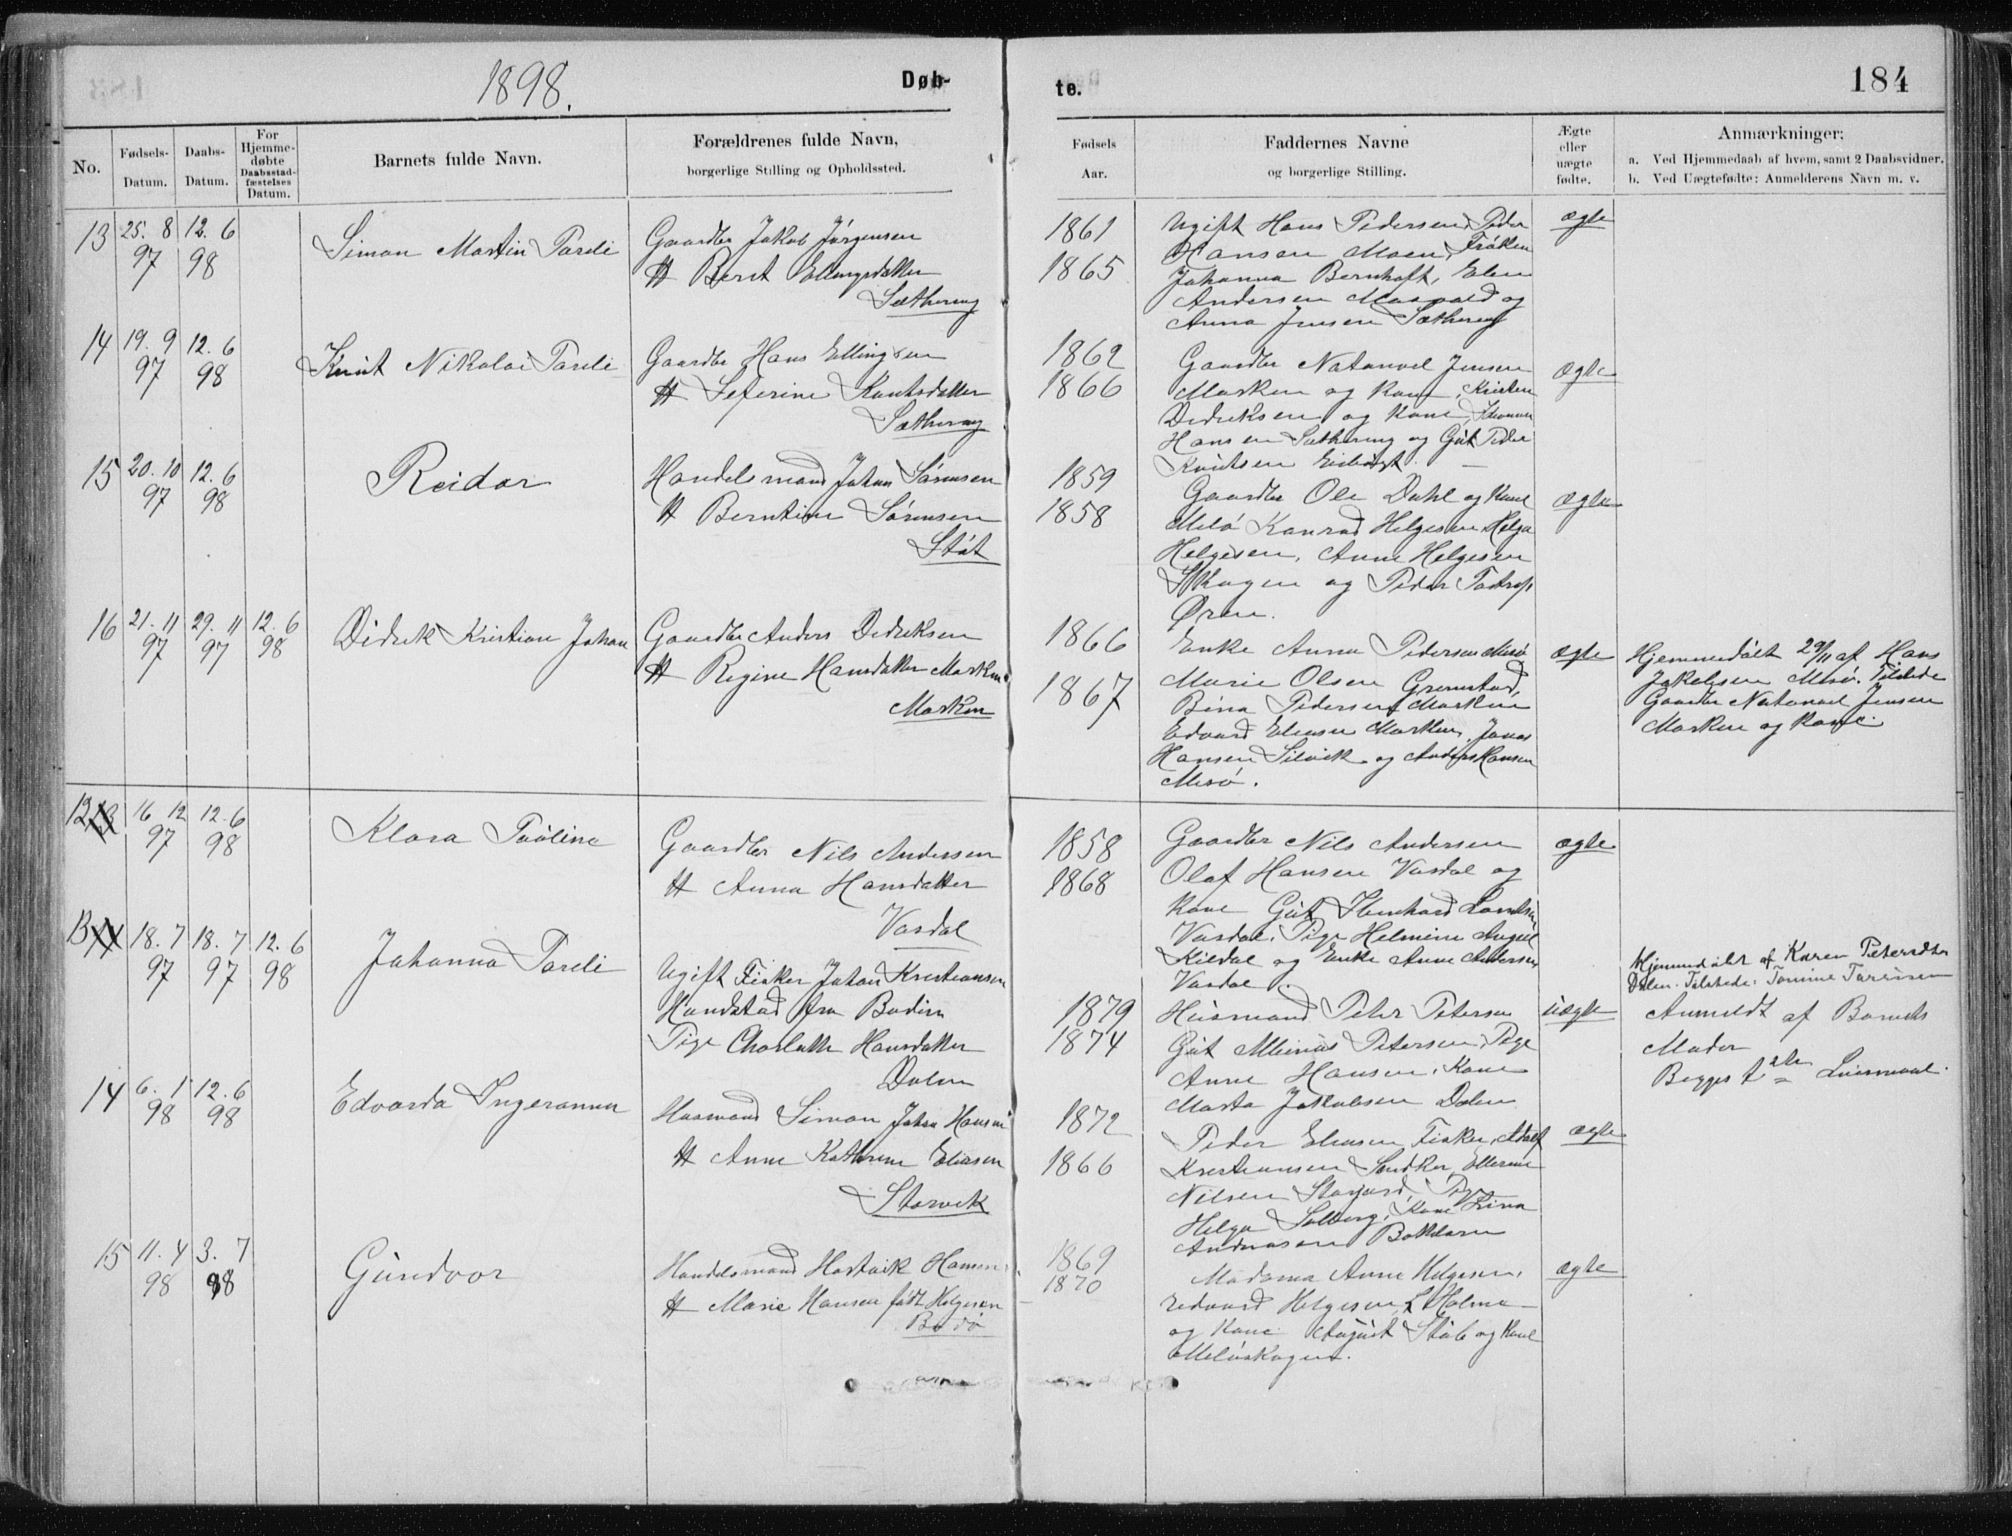 1898.
Døb-
te.
184
No.
Fødsels-
Datum.
Daabs-
Datum.
For
Hjemme-
døbte
Daabsstad-
fæstelses
Datum.
Barnets fulde Navn.
Forældrenes fulde Navn,
borgerlige Stilling og Opholdssted.
Fødsels
Aar.
Faddernes Navne
og borgerlige Stilling.
Ægte
eller
uægte
fødte.
Anmærkninger:
a. Ved Hjemmedaab af hvem, samt 2 Daabsvidner.
b. Ved Uægtefødte: Anmelderens Navn m. v.
13
25. 8
97
12. 6
98
Simon Martin Pareli
Gaardbr Jakob Jörgensen
H Berit Ellingsdatter
Sæthernng
1861
1865
Ugift Hans Pedersen, Peder
Hansen Moen, Fröken
Johanna Bernhoft, Elen
Andersen Mosvold og
Anna Jensen Sætherng
ægte
14
19. 9
97
12. 6
98
Knut Nikolai Pareli
Gaardbr Hans Ellingsen
H Seferine Knutsdatter
Sætherng
1862
1866
Gaardbr Natanael Jensen
Marken og Kone, Kristen
Dedriksen og Kone,
Hansen Sætherng og Gut Peder
Knutsen
ægte
15
20. 10
97
12. 6
98
Reidar
Handelsmand Johan Sörensen
H Berntine Sörensen
Støt
1859
1858
Gaardbr Ole Dahl og Kone
Melö Konrad Helgesen, Helga
Helgesen, Anne Helgesen
Skagen og Peder
Ören.
ægte
16
21. 11
97
29. 11
97
12. 6
98
Didrik Kristian Johan
Gaardbr Anders Dedriksen
H Regine Hansdatter Marken
Marken
1866
1867
Enke Anna Pedersen Mesö
Marie Olsen Grimstad,
Bina Pedersen Marken
Edvard Eliasen Marken, Jonas
Hansen Selvik og Anders Hansen
Mesö.
ægte
Hjemmedöbt 29/11 af Hans
Jakobsen Mesö. Tilstede
Gaardbr Natanael Jensen
Marken og Kone.
12
16 12
97
12. 6
98
Klara Paoline
Gaardbr Nils Andersen
H Anna Hansdatter
Vasdal
1858
1868
Gaardbr Nils Andersen
Olaf Hansen Vasdal og
Kone Gut
Vasdal, Pige Helmine
Kildal og Enke Anne Andersen
Vasdal.
ægte
13
18. 7
97
18. 7
97
12. 6
98
Johanna Pareli
Ugift Fisker Johan Kristiansen
fra Bodin
Pige Charlotte Hansdatter
Dalen
1879
1874
Husmand Peter Petersen
Gut Meinus Petersen, Pige
Anne Hansen, Kone
Marta Jakobsen Dalen
uægte
Hjemmedöbt af Karen Petersdtr
Dalen. Tilstede: Tomine
Anmeldt af Barnets
Moder
Begges 1ste Leiermaal.
14
6. 1
98
12. 6
98
Edvarda Ingeranna
Husmand Simon Johan Hansen
H Anne Kathrine Eliasen
Storvik
1872
1866
Peder Eliasen Fisker, Adolf
Kristiansen
Nilsen Storjord, Pige
Helga Solberg, Kone Lina
Andreasen
ægte
15
11. 4
98
3. 7
98
Gundvor
Handelsmand Hartvik Hansen
H Marie Hansen født Helgesen
Bodö
1869
1870
Madama Anne Helgesen,
Edvard Helgesen,
og Kone August Stöt og Kone
Melöskagen.
ægte